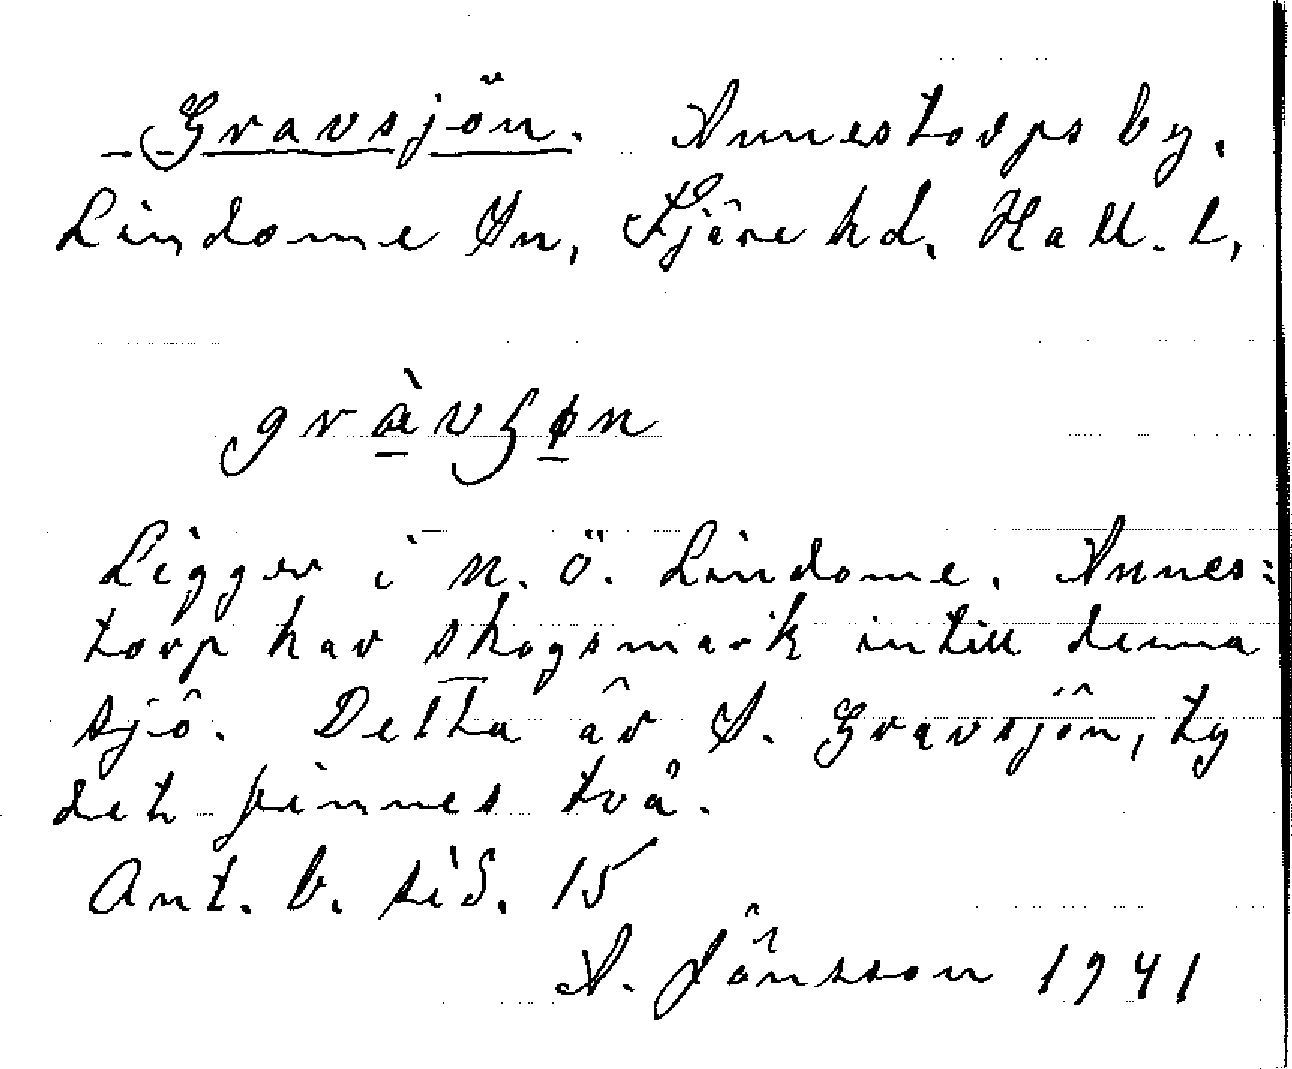 Gravsjön. Annestorps by.
Lindome sn, Fjäre hd. Hall. l,
Ligger i n. ö. Lindome. Annes=
torp har skogsmark intill denna
sjö. Detta är S. Gravsjön, ty
det finnes två.
Ant. b. sid. 15
A. Jönsson 1941